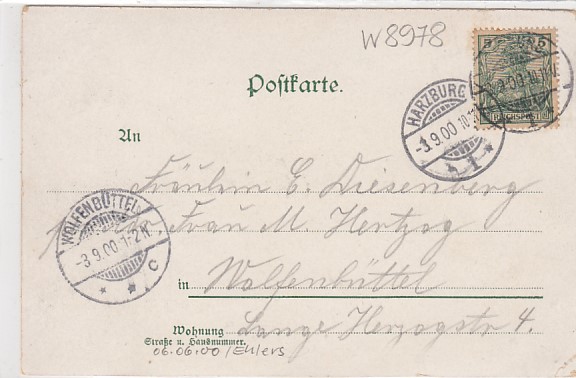 W8978
5 5
REICHSPOST
HARZBURG
-3.9.00.10-
1
Postkarte.
An
Fräulein E. Diesenberg
Frau M Hertzog
WOLFENBÜTTEL
-3.9.00.1-2N.
* * C
in Wolfenbüttel
Wohnung
Straße u. Hausnummer.
Lange Herzogstr 4.
06.06.00/Ehlers